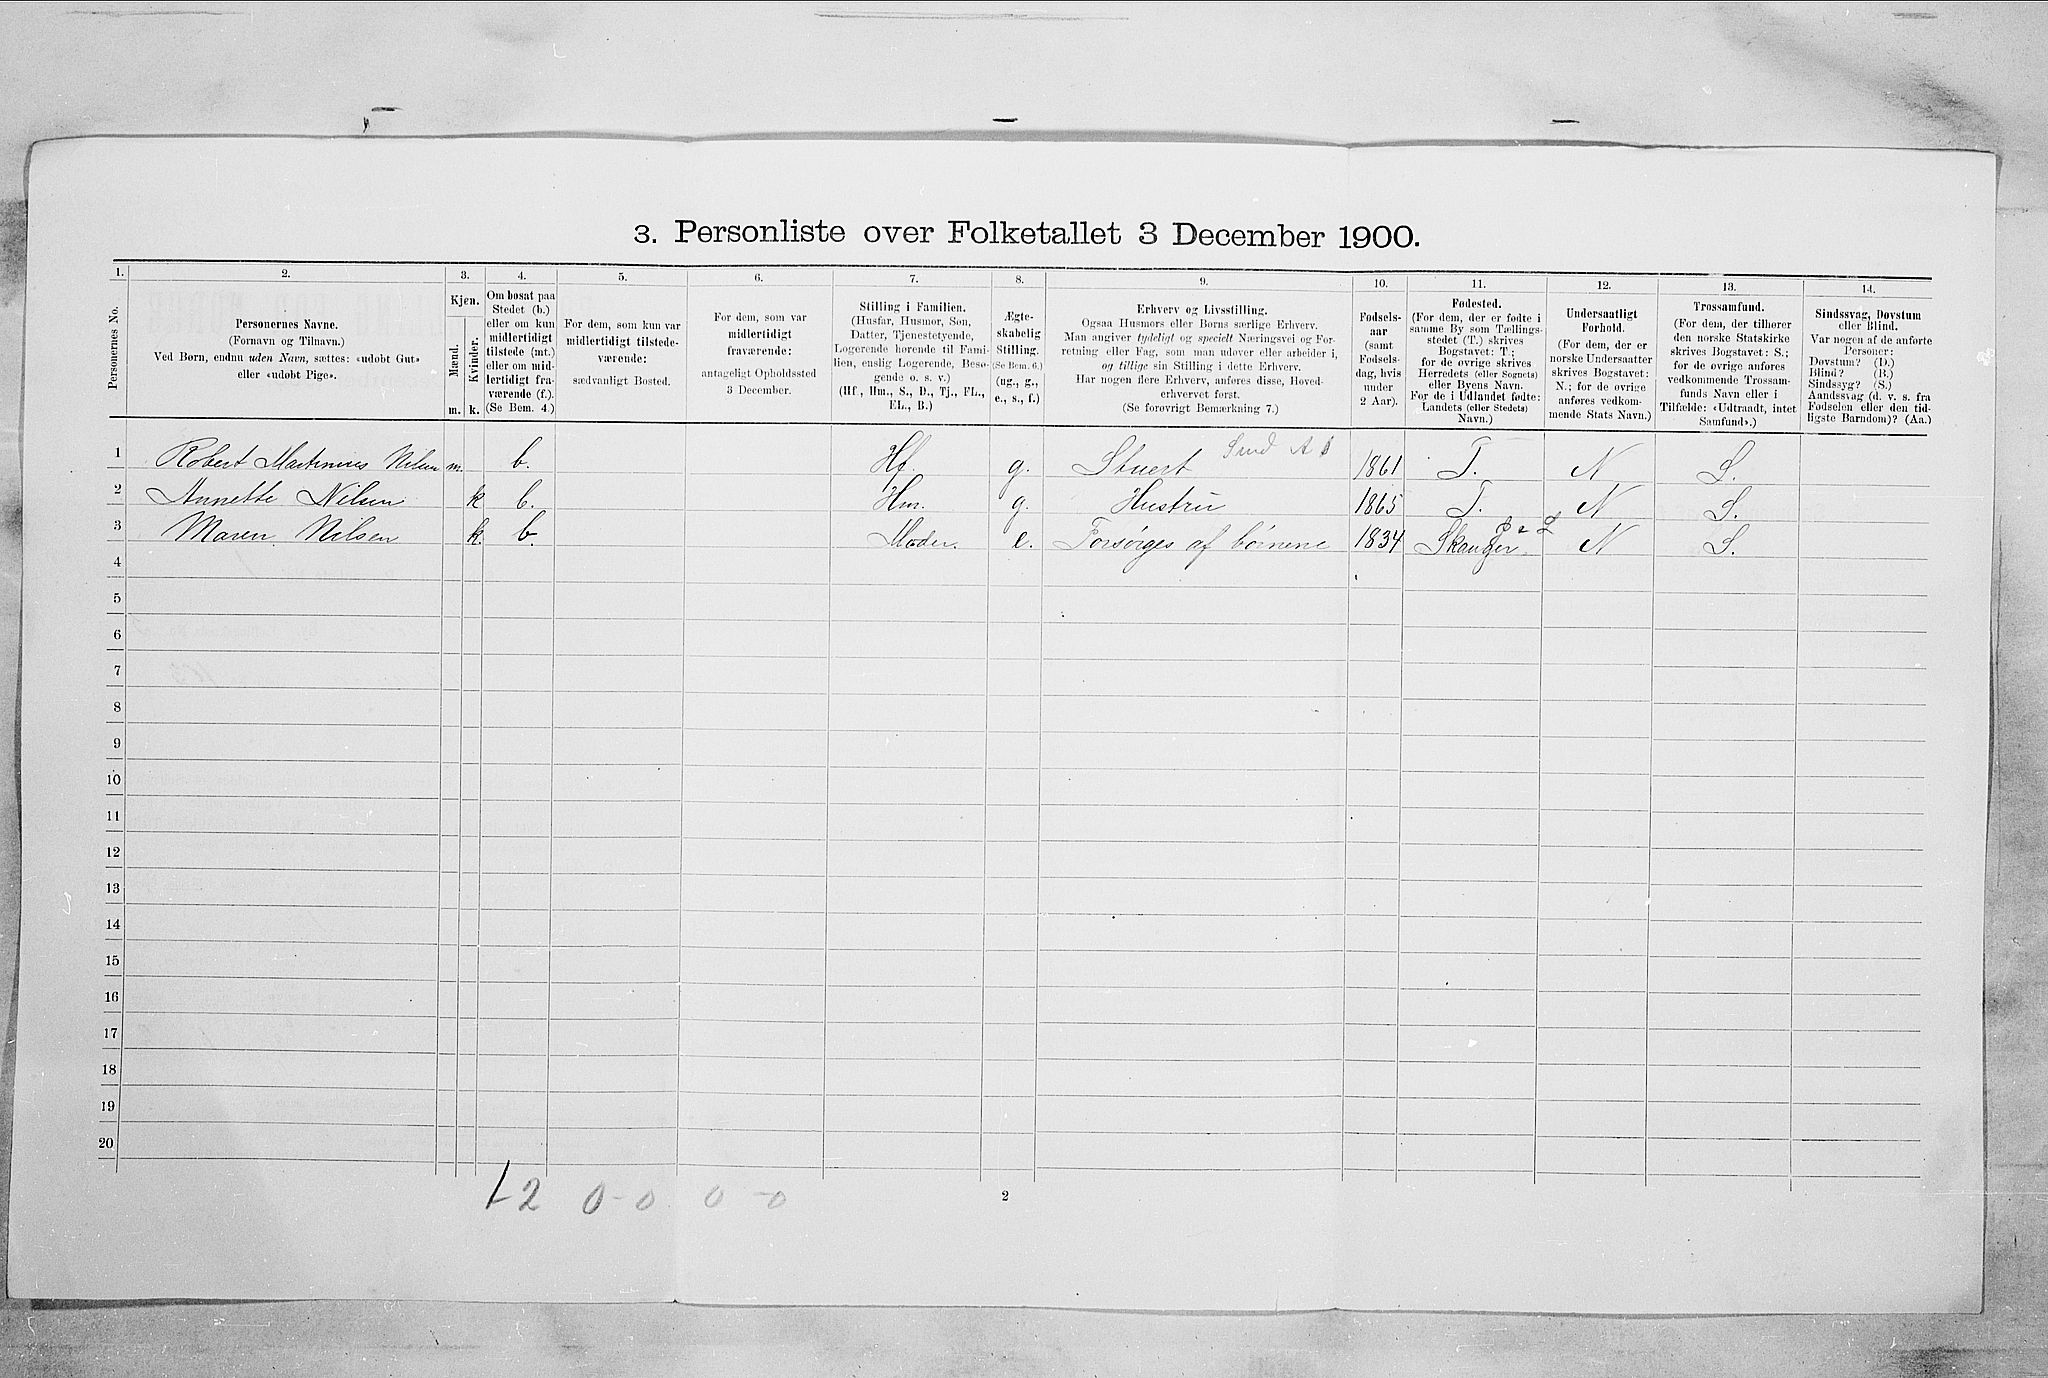 3. Personliste over Folketallet 3 December 1900.
1. 2. 3. 4. 5. 6. 7. 8. 9. 10. 11. 12. 13. 14.
Personernes No.
Personernes Navne.
(Fornavn og Tilnavn.)
Ved Børn, endnu uden Navn, sættes: «udøbt Gut»
eller «udøbt Pige».
Kjøn.
Mænd.
Kvinder.
m. k.
Om bosat paa
Stedet (b.)
eller om kun
midlertidigt
tilstede (mt.)
eller om mid-
lertidigt fra-
værende (f.).
(Se Bem. 4.)
For dem, som kun var
midlertidigt tilstede-
værende:
sædvanligt Bosted.
For dem, som var
midlertidigt
fraværende:
antageligt Opholdssted
3 December.
Stilling i Familien.
(Husfar, Husmor, Søn,
Datter, Tjenestetyende,
Logerende hørende til Fami-
lien, enslig Logerende, Besø-
gende o. s. v.)
(Hf., Hm., S., D., Tj., FL.,
EL., B.)
Ægte-
skabelig
Stilling.
(Se Bem. 6.)
(ug., g.,
e., s., f.)
Erhverv og Livsstilling.
Ogsaa Husmors eller Børns særlige Erhverv.
Man angiver tydeligt og specielt Næringsvei og For-
retning eller Fag, som man udøver eller arbeider i,
og tillige sin Stilling i dette Erhverv.
Har nogen flere Erhverv, anføres disse, Hoved-
erhvervet først.
(Se forøvrigt Bemærkning 7.)
Fødsels-
aar
(samt
Fødsels-
dag, hvis
under
2 Aar).
Fødested.
(For dem, der er fødte i
samme By som Tællings-
stedet (T.) skrives
Bogstavet: T.;
for de øvrige skrives
Herredets (eller Sognets)
eller Byens Navn.
For de i Udlandet fødte:
Landets (eller Stedets)
Navn.)
Undersaatligt
Forhold.
(For dem, der er
norske Undersaatter
skrives Bogstavet:
N.; for de øvrige
anføres vedkom-
mende Stats Navn.)
Trossamfund.
(For dem, der tilhører
den norske Statskirke
skrives Bogstavet: S.;
for de øvrige anføres
vedkommende Trossam-
funds Navn eller i
Tilfælde: «Udtraadt, intet
Samfund».)
Sindssvag, Døvstum
eller Blind.
Var nogen af de anførte
Personer:
Døvstum? (D.)
Blind? (B.)
Sindssyg? (S.)
Aandssvag (d. v. s. fra
Fødselen eller den tid-
ligste Barndom)? (Aa.)
1 Robert Martinius Nilsen m. b. Hf. g. Stuert 1861 T. N S.
2 Annette Nilsen k b. Hm. g. Hustru 1865 T. N S.
3 Maren Nilsen k. b. Moder. e. Forsørges af børnene 1834 Skauger N S.
4
5
6
7
8
9
10
11
12
13
14
15
16
17
18
19
20
1-2 0-0 0-0
2